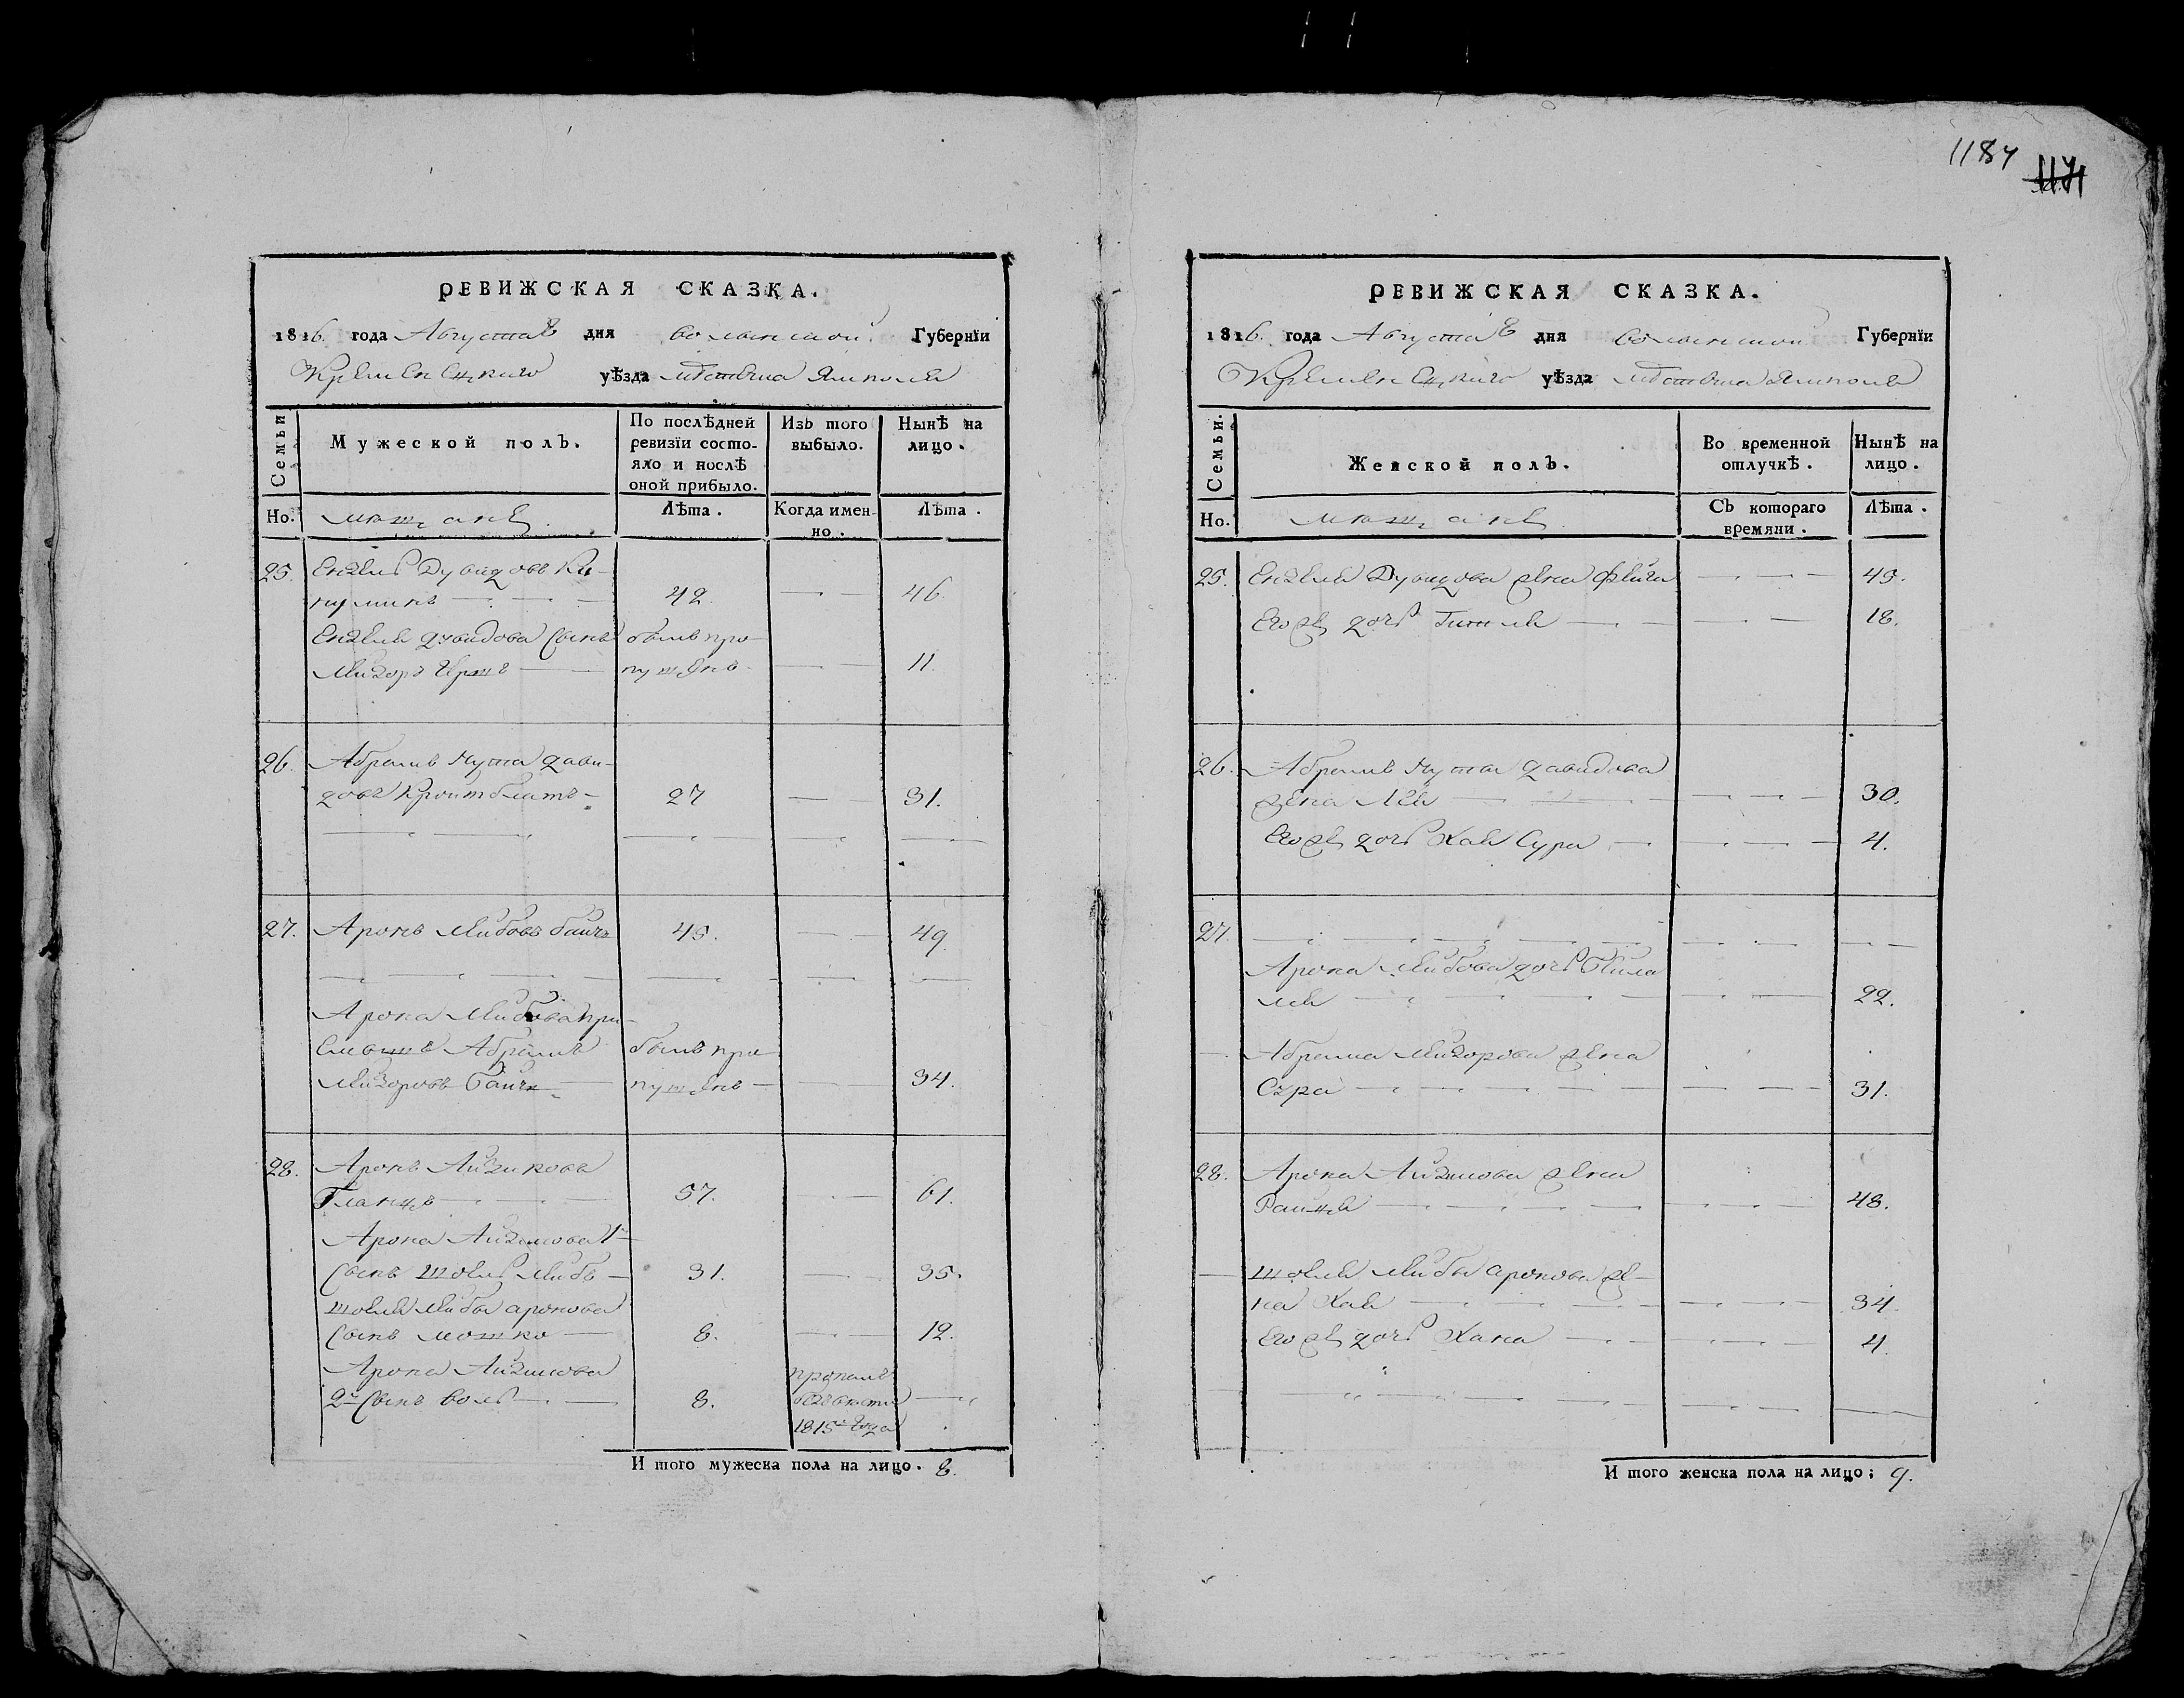 1184
1171
РЕВИЖСКАЯ СКАЗКА.
1816. года Августа 8 дня волынской Губернїи
Кременецкаго уѣзда мѣстечка Ямполя
Семьи
Мужеской полъ.
По послѣдней ревизїи состояло и послѣ оной прибыло.
Изъ того выбыло.
Нынѣ на лицо.
Но.
мещане
Лѣта.
Когда именно.
Лѣта.
25. Ензель Дувидовъ Ки-
пулинъ 42. 46.
Ензеля дувидова Сынъ былъ про-
Лейзоръ Гершъ пущенъ 11.
26. Абрамъ Нута дави-
довъ Кроитблатъ 27 31.
27. Аронъ Лейбовъ 45. 49.
Арона Лейбова при-
емышъ Абрамъ былъ про-
Лейзоровъ пущенъ 34.
28. Аронъ Айзиковъ
Гланцъ 57. 61.
Арона Айзикова 1й
Сынъ Шоель Лейбъ 31. 35.
Шоеля Лейбы аронова
Сынъ Мошко 8. 12.
Арона Айзикова пропалъ
2й Сынъ Воль 8. безвести
1815 года
И того мужеска пола на лицо. 8.
РЕВИЖСКАЯ СКАЗКА.
1816. года Августа 8 дня волынской Губернїи
Кременецкаго уѣзда мѣстечка Ямполя
Семьи.
Женской полъ.
Во временной отлучкѣ.
Нынѣ на лицо.
Но.
мещане
Съ котораго времяни.
Лѣта.
25. Ензеля Дувидова жена Фейга 45.
Его же дочь Гитля 18.
26. Абрама Нуты давидова
жена Лея 30.
Его же дочь Хая Сура 4.
27.
Арона Лейбова дочь Бейла
Лея 22.
Абрама Лейзорова жена
Сура 31.
28. Арона Айзикова жена
Раиця 48.
Шоеля Лейбы аронова же-
на Хая 34.
Его же дочь Хана 4.
И того женска пола на лицо; 9.